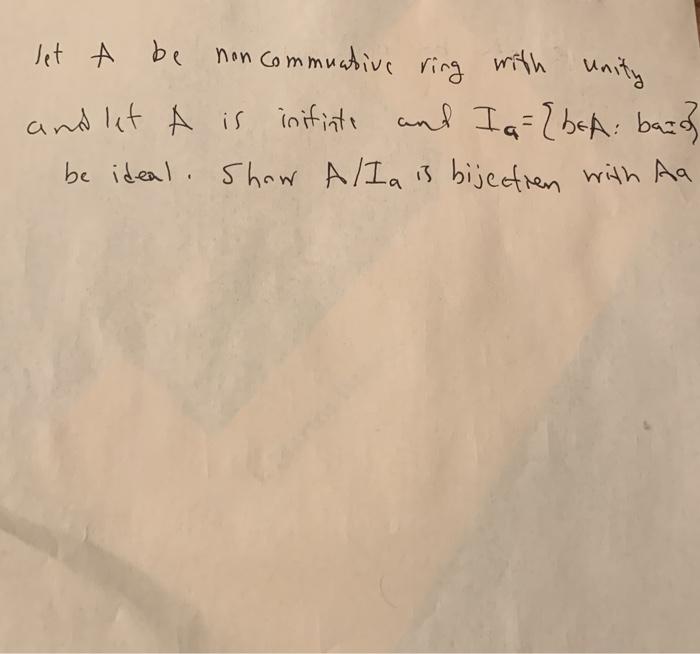 let A be noncommuative ring with unity
and let A is inifinte and I_a = {b∈A: ba=0}
be ideal. Show A/I_a is bijection with Aa